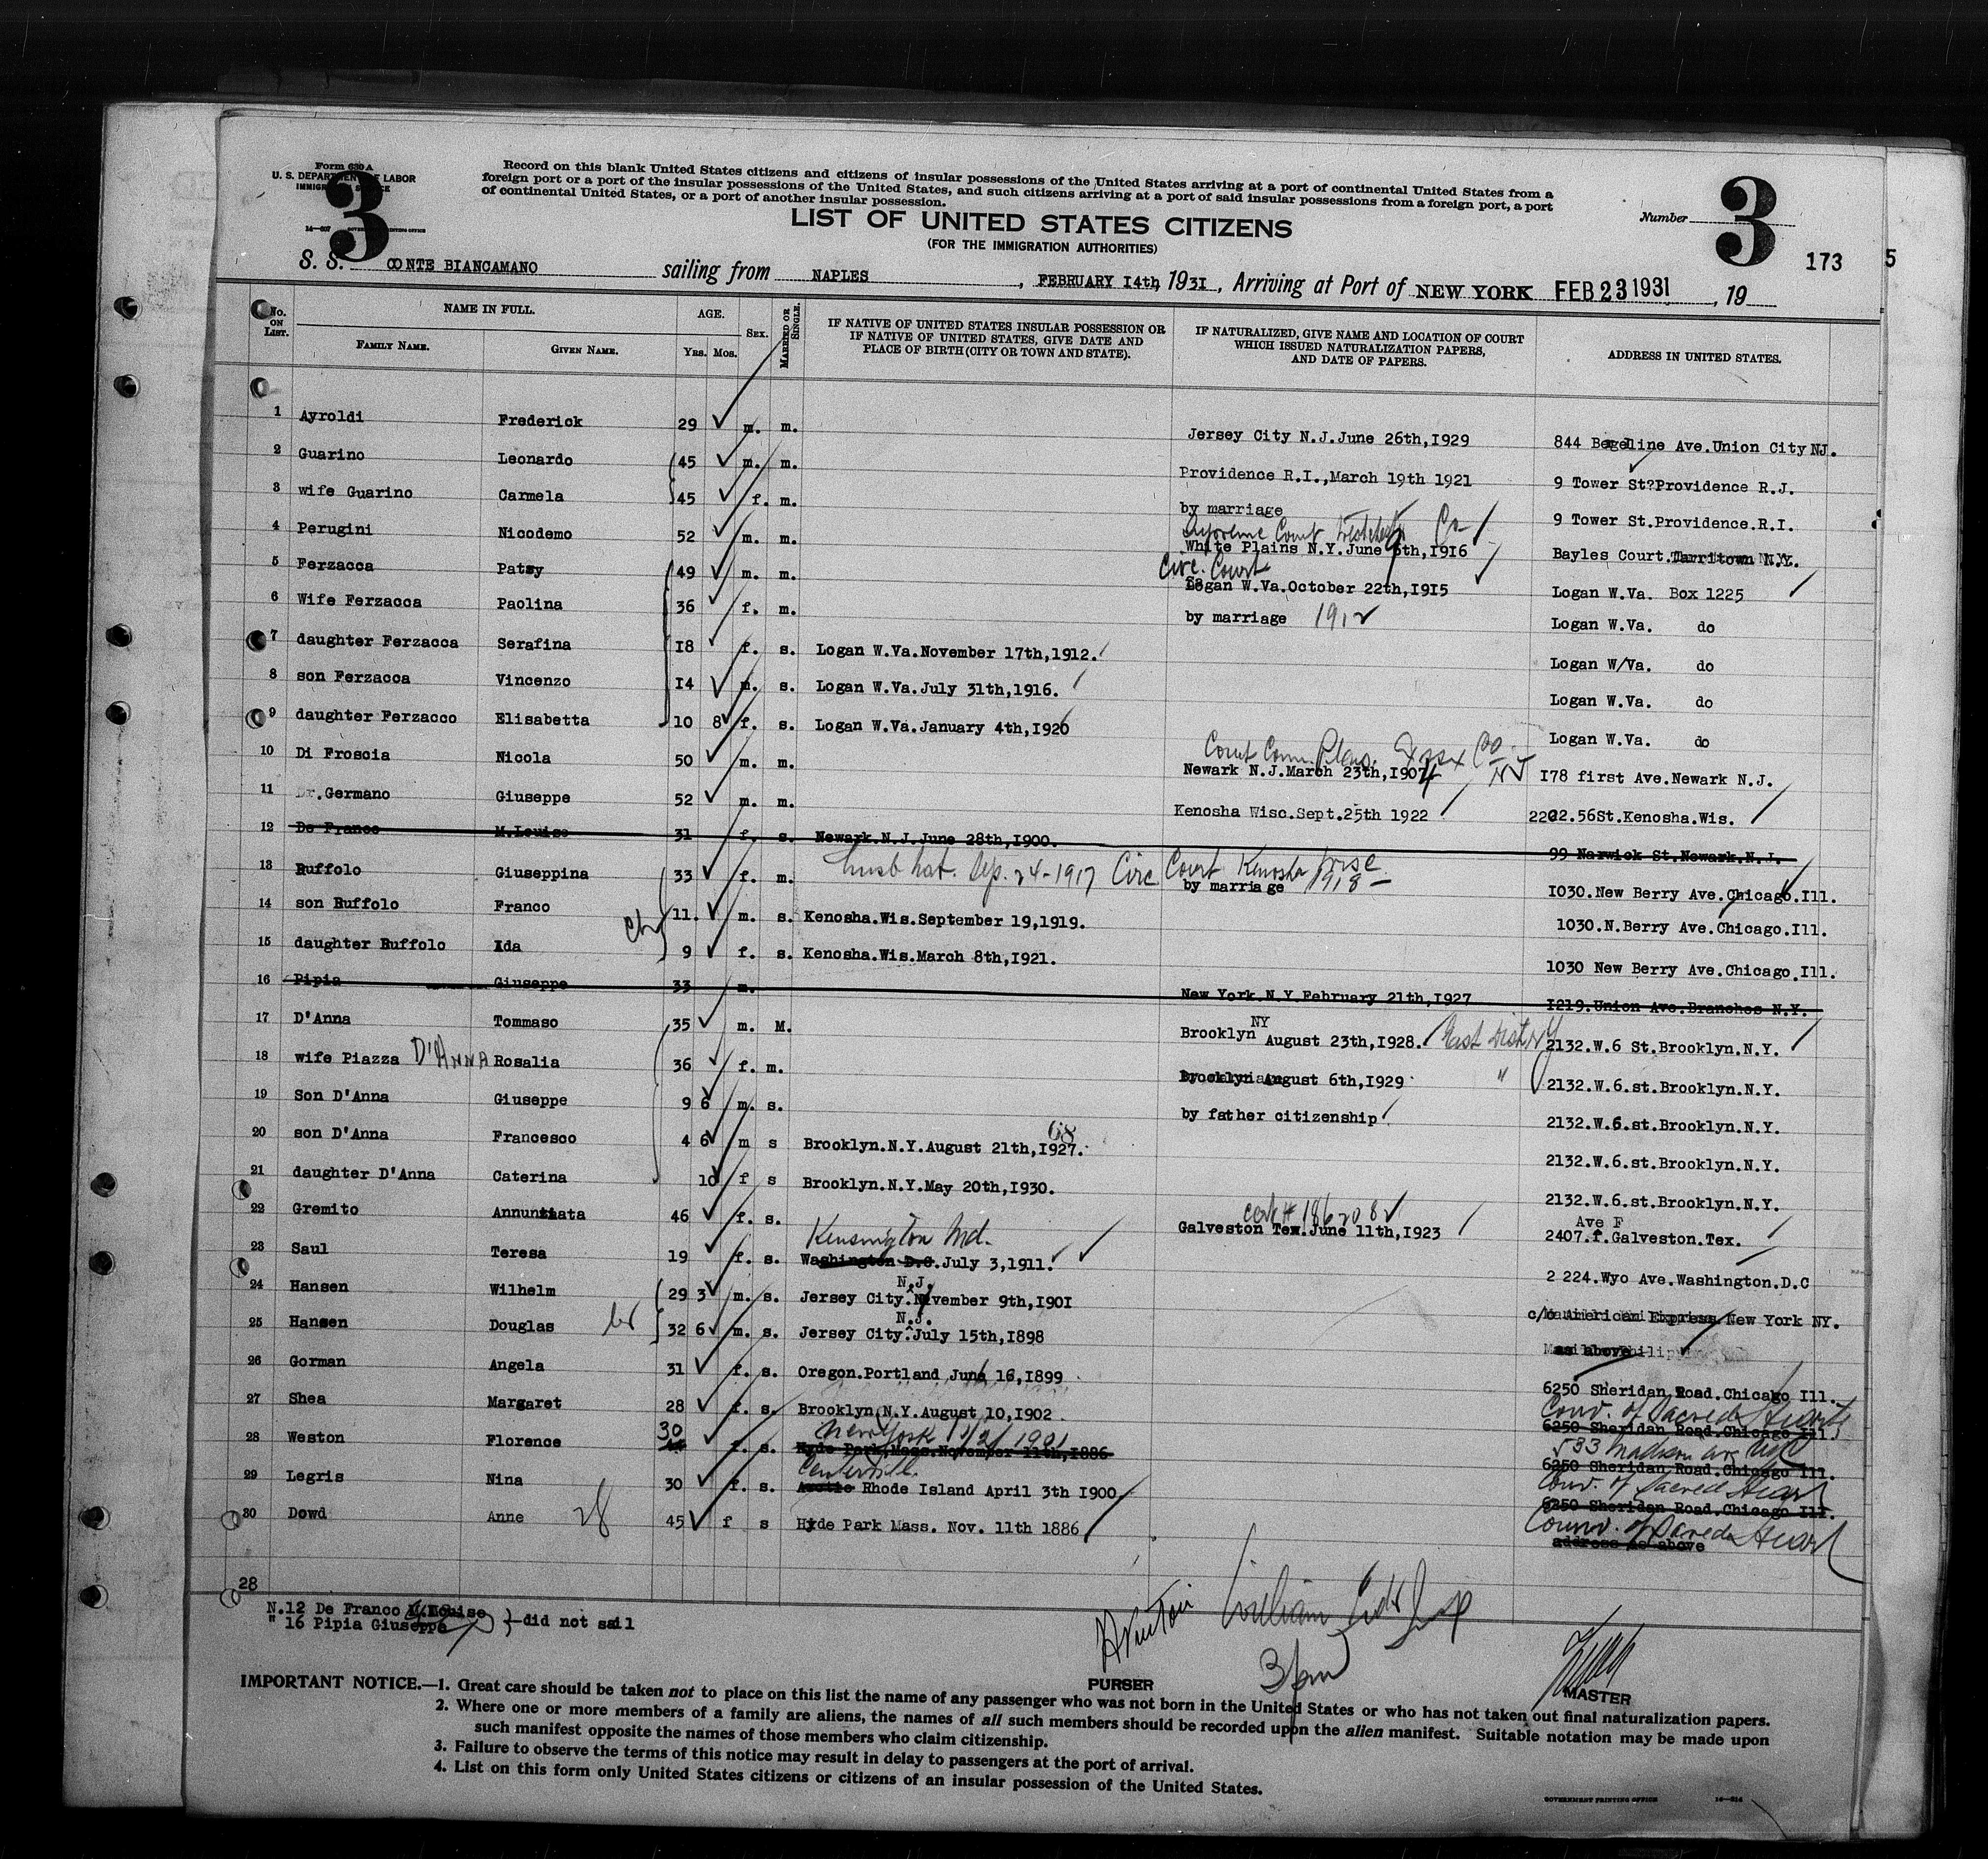 Form 630 A
U. S. DEPARTMENT OF LABOR
IMMIGRATION SERVICE
3
Record on this blank United States citizens and citizens of insular possessions of the United States arriving at a port of continental United States from a
foreign port or a port of the insular possessions of the United States, and such citizens arriving at a port of said insular possessions from a foreign port, a port
of continental United States, or a port of another insular possession.
LIST OF UNITED STATES CITIZENS
(FOR THE IMMIGRATION AUTHORITIES)
Number 3
173 5
S. S. CONTE BIANCAMANO sailing from NAPLES, FEBRUARY 14th, 1931, Arriving at Port of NEW YORK FEB 23 1931, 19
No. ON LIST. NAME IN FULL. FAMILY NAME. GIVEN NAME. AGE. YRS. MOS. SEX. MARRIED OR SINGLE. IF NATIVE OF UNITED STATES INSULAR POSSESSION OR IF NATIVE OF UNITED STATES, GIVE DATE AND PLACE OF BIRTH (CITY OR TOWN AND STATE). IF NATURALIZED, GIVE NAME AND LOCATION OF COURT WHICH ISSUED NATURALIZATION PAPERS, AND DATE OF PAPERS. ADDRESS IN UNITED STATES.
1 Ayroldi Frederick 29 m. m. Jersey City N.J.June 26th,I929 844 Begeline Ave.Union City NJ.
2 Guarino Leonardo 45 m. m. Providence R.I.,March 19th 1921 9 Tower St?Providence R.J.
3 wife Guarino Carmela 45 f. m. by marriage 9 Tower St.Providence.R.I.
4 Perugini Nicodemo 52 m. m. Supreme Court White Plains N.Y.June 6th,I9I6 Bayles Court.Tarritown N.Y.
5 Ferzacca Patsy 49 m. m. Circ. Court Logan W.Va.October 22th,I9I5 Logan W.Va. Box 1225
6 Wife Ferzacca Paolina 36 f. m. by marriage 1912 Logan W.Va. do
7 daughter Ferzacca Serafina I8 f. s. Logan W.Va.November 17th,1912. Logan W/Va. do
8 son Ferzacca Vincenzo I4 m. s. Logan W.Va.July 31th,1916. Logan W.Va. do
9 daughter Ferzacco Elisabetta 10 8 f. s. Logan W.Va.January 4th,I920 Logan W.Va. do
10 Di Froscia Nicola 50 m. m. Court Com. Pleas. Essex Co. NJ Newark N.J.March 23th,I904 I78 first Ave.Newark N.J.
11 Dr.Germano Giuseppe 52 m. m. Kenosha Wisc.Sept.25th 1922 2202.56St.Kenosha.Wis.
12 De Franco M.Louise 31 f. s. Newark.N.J.June 28th,I900. 99 Warwick St.Newark.N.J.
13 Ruffolo Giuseppina 33 f. m. husb nat. Sep. 24-1917 Circ Court Kenosha Wisc by marriage 1918 I030.New Berry Ave.Chicago.Ill.
14 son Ruffolo Franco 11. m. s. Kenosha.Wis.September 19,1919. 1030.N.Berry Ave.Chicago.Ill.
15 daughter Ruffolo Ida 9 f. s. Kenosha.Wis.March 8th,I921. 1030 New Berry Ave.Chicago.Ill.
16 Pipia Giuseppe 33 m. New York.N.Y.February 21th,I927 I219.Union Ave.Branches N.Y.
17 D'Anna Tommaso 35 m. M. Brooklyn NY August 23th,I928. East Dist NY 2132.W.6 St.Brooklyn.N.Y.
18 wife Piazza D'ANNA Rosalia 36 f. m. Brooklyn August 6th,I929 " 2132.W.6.st.Brooklyn.N.Y.
19 Son D'Anna Giuseppe 9 6 m. s. by father citizenship 2132.W.6.st.Brooklyn.N.Y.
20 son D'Anna Francesco 4 6 m s Brooklyn.N.Y.August 21th,I927. 68 2132.W.6.st.Brooklyn.N.Y.
21 daughter D'Anna Caterina 10 f s Brooklyn.N.Y.May 20th,I930. 2132.W.6.st.Brooklyn.N.Y.
22 Gremito Annuntiata 46 f. s. cert # 186208 Galveston Tex.June 11th,I923 Ave F 2407.f.Galveston.Tex.
23 Saul Teresa 19 f. s. Kensington Md. Washington D.C.July 3,1911. 2 224.Wyo Ave.Washington.D.C
24 Hansen Wilhelm 29 3 m. s. Jersey City.N.J. November 9th,I90I c/o American Express.New York NY.
25 Hansen Douglas 32 6 m. s. Jersey City.N.J. July 15th,I898 as above
26 Gorman Angela 31 f. s. Oregon.Portland June 16,I899 6250 Sheridan Road.Chicago Ill.
27 Shea Margaret 28 f. s. Brooklyn N.Y.August 10,I902 Conv. of Sacred Heart 6250 Sheridan Road.Chicago Ill.
28 Weston Florence 30 f. s. New York 1901 Hyde Park,Mass.November 11th,I886 533 Madison Ave 6250 Sheridan Road.Chicago Ill.
29 Legris Nina 30 f. s. Centerville Arctic Rhode Island April 3th I900 Conv. of Sacred Heart 6250 Sheridan Road.Chicago Ill.
30 Dowd Anne 28 45 f s Hyde Park Mass. Nov. 11th 1886 Conv. of Sacred Heart address as above
28
N.12 De Franco M.Louise
" 16 Pipia Giuseppe }-did not sail
3 pm
PURSER
MASTER
IMPORTANT NOTICE.—1. Great care should be taken not to place on this list the name of any passenger who was not born in the United States or who has not taken out final naturalization papers.
2. Where one or more members of a family are aliens, the names of all such members should be recorded upon the alien manifest. Suitable notation may be made upon
such manifest opposite the names of those members who claim citizenship.
3. Failure to observe the terms of this notice may result in delay to passengers at the port of arrival.
4. List on this form only United States citizens or citizens of an insular possession of the United States.
GOVERNMENT PRINTING OFFICE